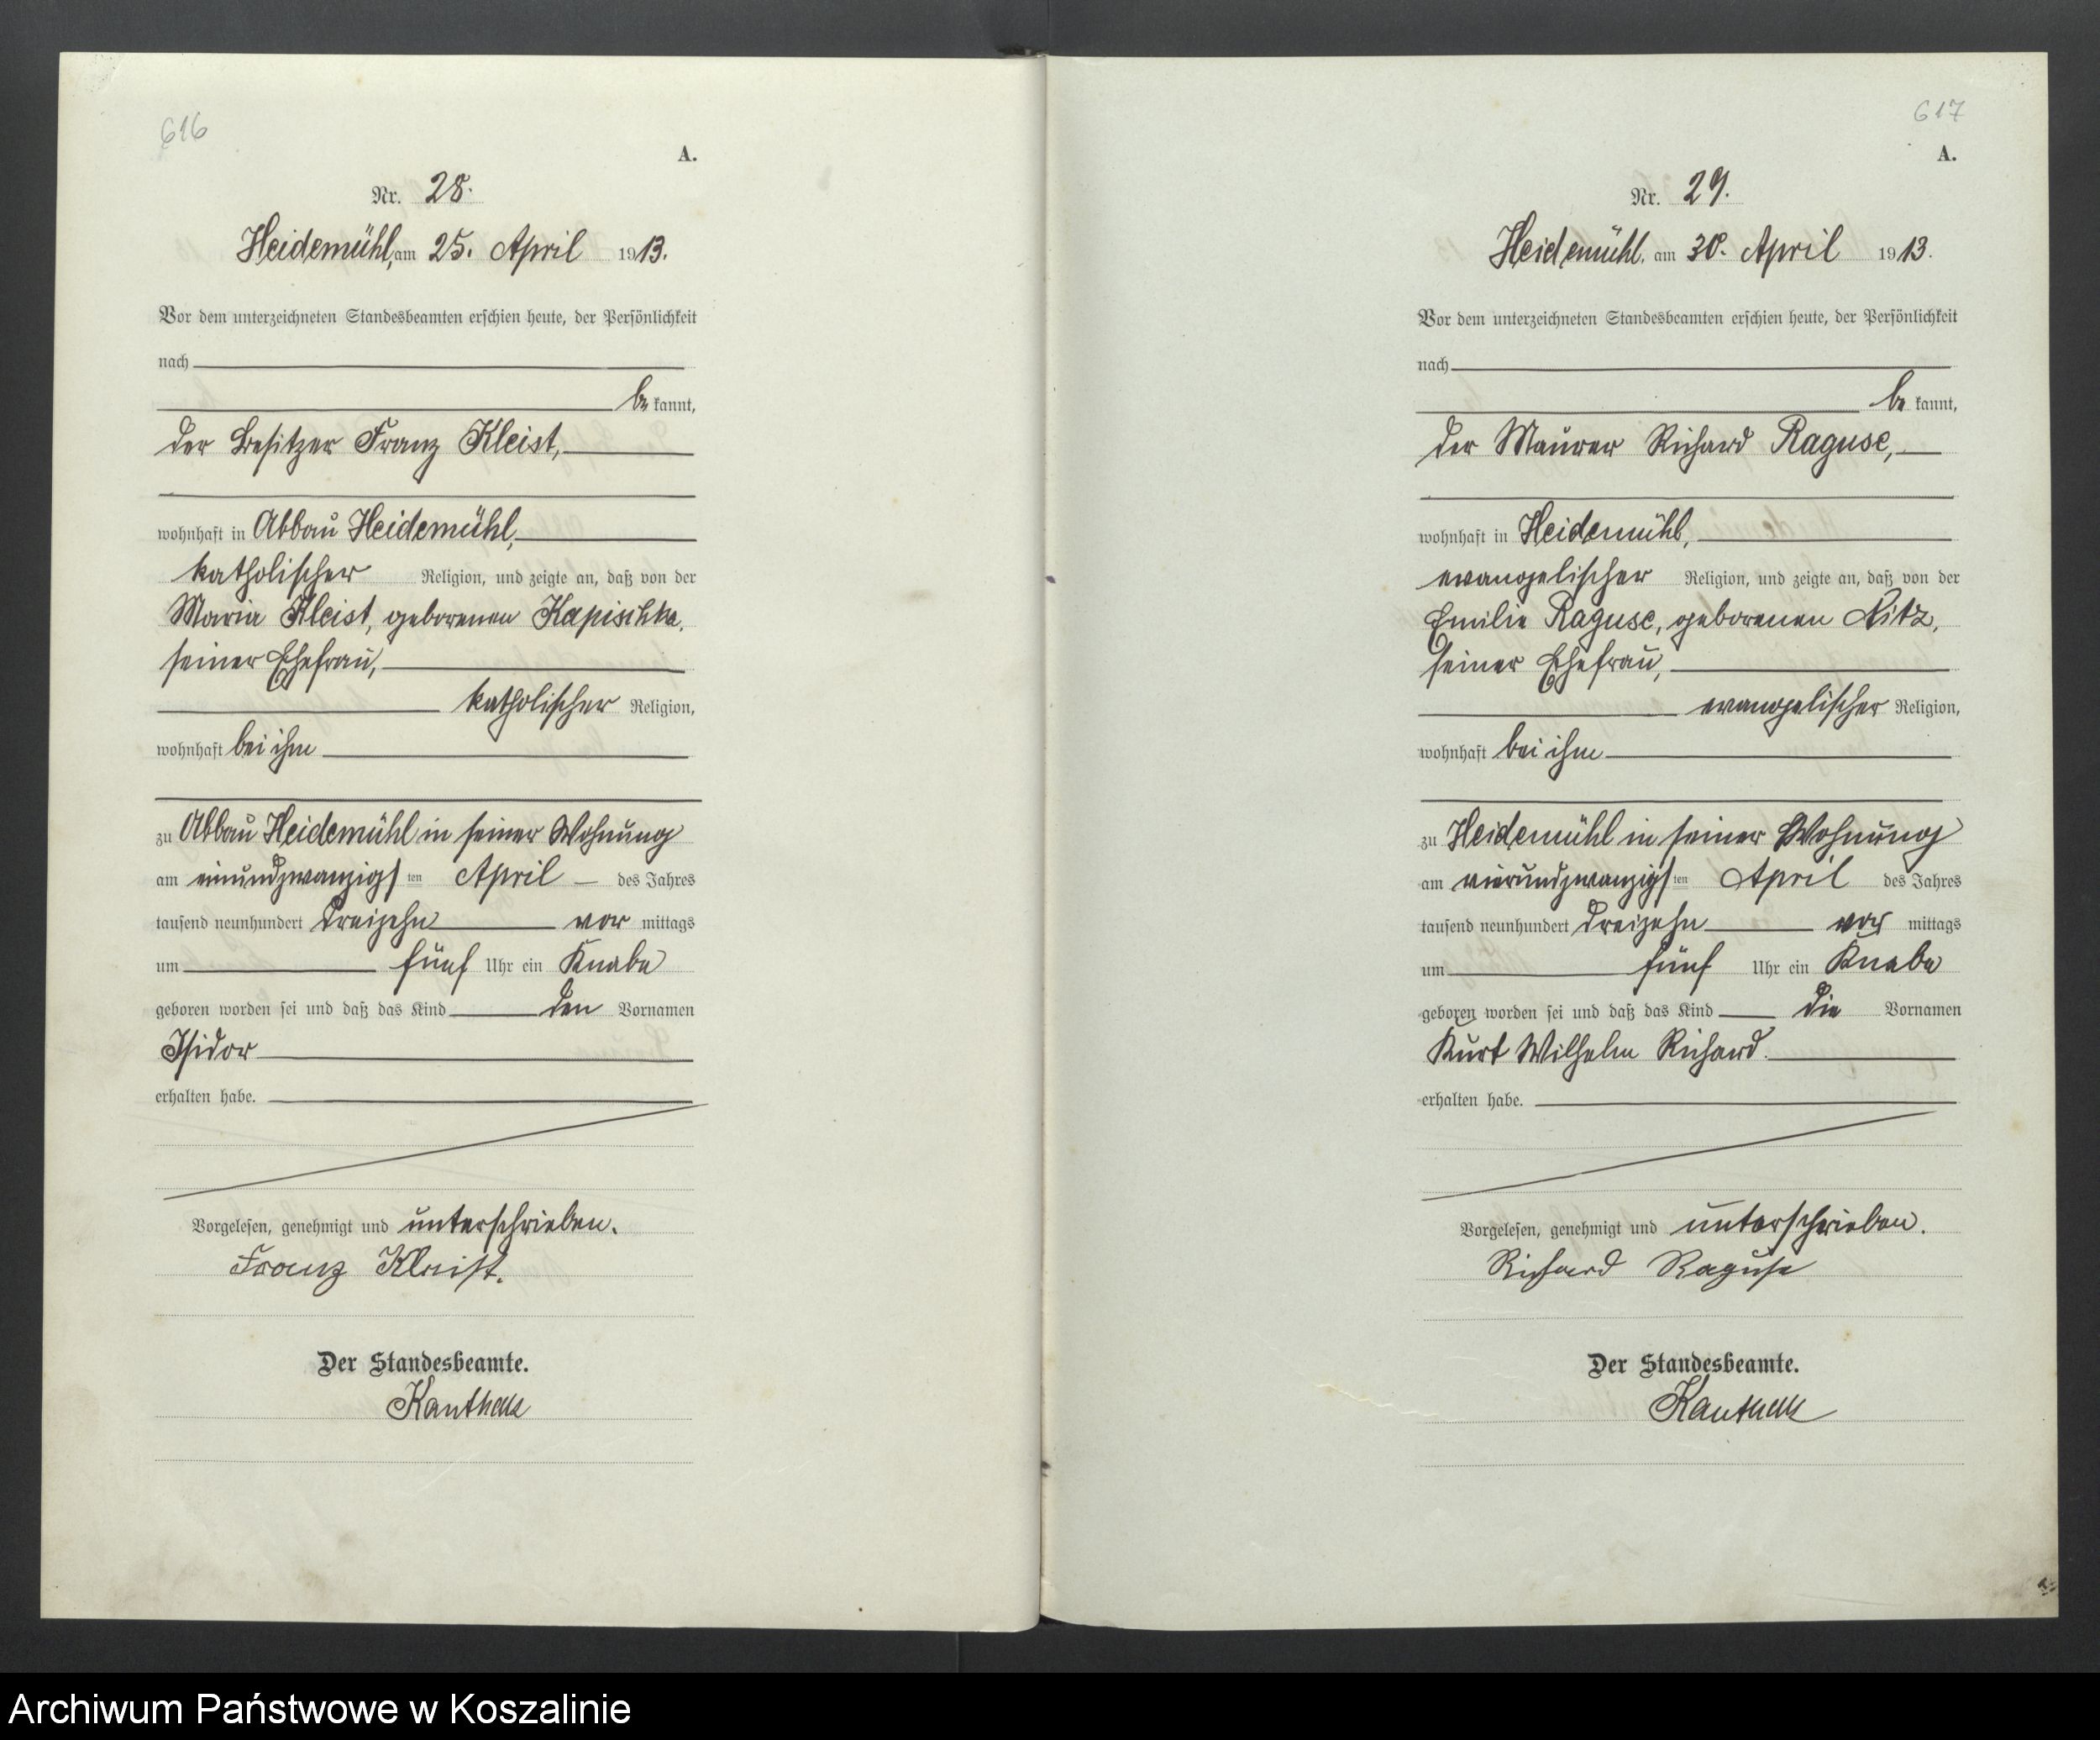 616
A.
Nr. 28.
Heidemühl, am 25. April 1913.
Vor dem unterzeichneten Standesbeamten erschien heute, der Persönlichkeit
nach
be kannt,
der Besitzer Franz Kleist,
wohnhaft in Abbau Heidemühl,
katholischer Religion, und zeigte an, daß von der
Maria Kleist, geborenen Kapischke,
seiner Ehefrau,
katholischer Religion,
wohnhaft bei ihm
zu Abbau Heidemühl in seiner Wohnung
am einundzwanzigsten April des Jahres
tausend neunhundert dreizehn vor mittags
um fünf Uhr ein Knabe
geboren worden sei und daß das Kind den Vornamen
Isidor
erhalten habe.
Vorgelesen, genehmigt und unterschrieben.
Franz Kleist.
Der Standesbeamte.
617
A.
Nr. 29.
Heidemühl. am 30. April 1913.
Vor dem unterzeichneten Standesbeamten erschien heute, der Persönlichkeit
nach
be kannt,
der Maurer Richard Raguse,
wohnhaft in Heidemühl,
evangelischer Religion, und zeigte an, daß von der
Emilie Raguse, geborenen Nitz,
seiner Ehefrau,
evangelischer Religion,
wohnhaft bei ihm
zu Heidemühl in seiner Wohnung
am vierundzwanzigsten April des Jahres
tausend neunhundert dreizehn vor mittags
um fünf Uhr ein Knabe
geboren worden sei und daß das Kind die Vornamen
Kurt Wilhelm Richard.
erhalten habe.
Vorgelesen, genehmigt und unterschrieben.
Richard Raguse
Der Standesbeamte.
Archiwum Państwowe w Koszalinie